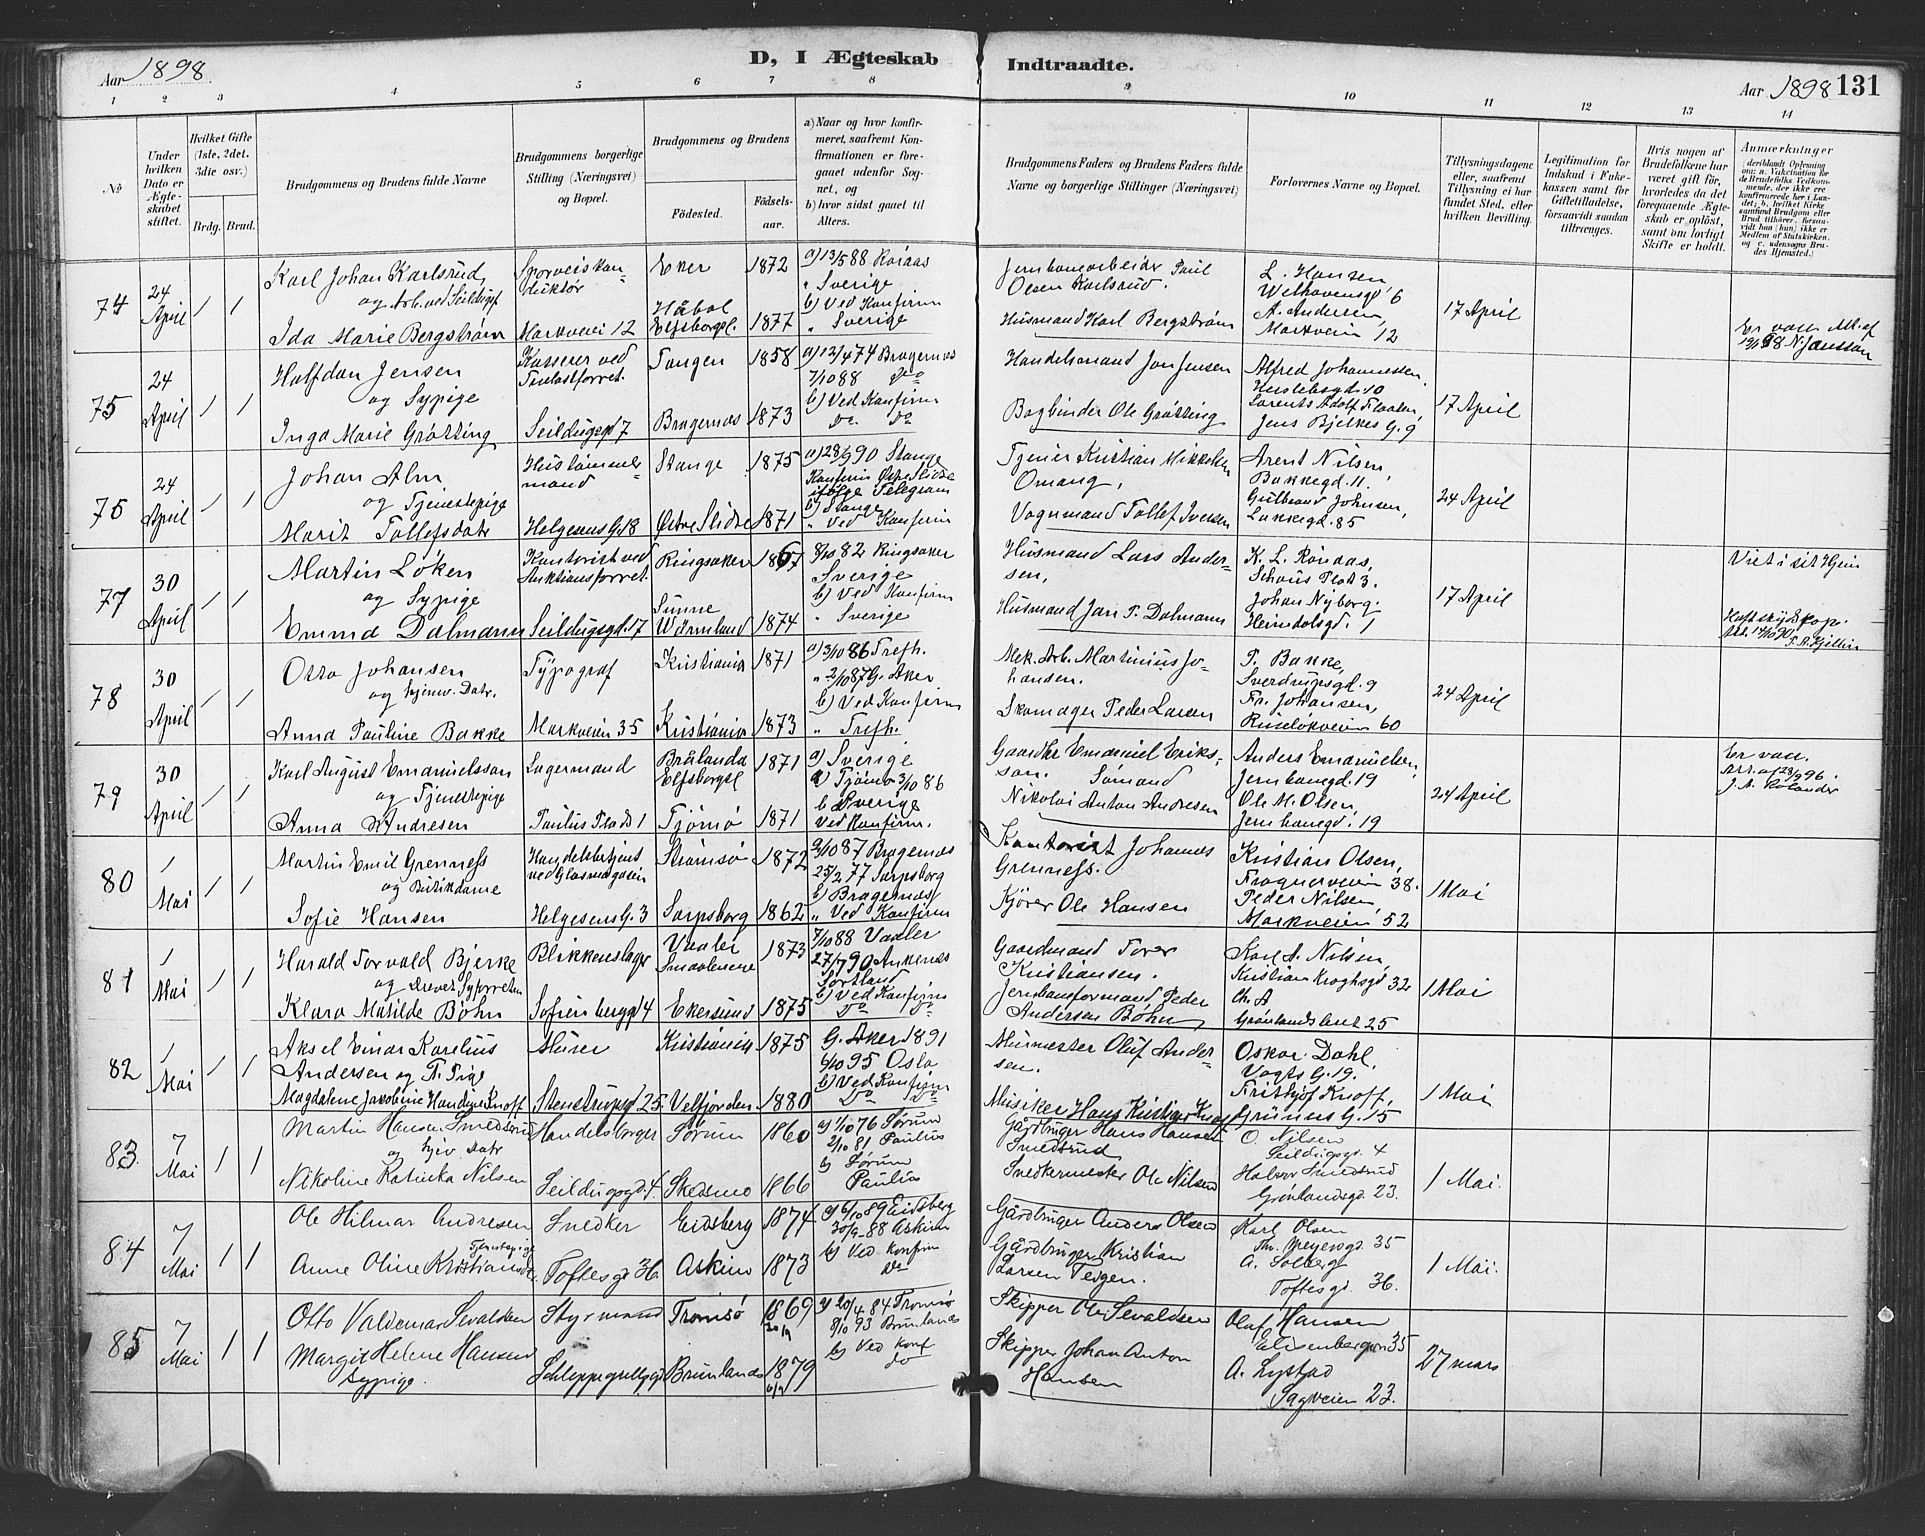 Aar 1898
D, I Ægteskab Indtraadte.
Aar 1898 131
1 2 3 4 5 6 7 8 9 10 11 12 13 14
No
Under hvilken Dato er Ægteskabet stiftet.
Hvilket Gifte (1ste, 2det, 3die osv.)
Brdg. Brud.
Brudgommens og Brudens fulde Navne
Brudgommens borgerlige Stilling (Næringsvei) og Bopæl.
Brudgommens og Brudens
Fødested.
Fødselsaar.
a) Naar og hvor konfirmeret, saafremt Konfirmationen er foregaaet udenfor Sognet, og
b) hvor sidst gaaet til Alters.
Brudgommens Faders og Brudens Faders fulde Navne og borgerlige Stillinger (Næringsvei)
Forlovernes Navne og Bopæl.
Tillysningsdagene eller, saafremt Tillysning ei har fundet Sted, efter hvilken Bevilling.
Legitimation for Indskud i Enkekassen samt for Giftetilladelse, forsaavidt saadan tiltrænges.
Hvis nogen af Brudefolkene har været gift før, hvorledes da det foregaaende Ægteskab er opløst, samt om lovligt Skifte er holdt.
Anmærkninger
74 24 April 1 1
Karl Johan Karlsrud,
og Arb. ved Seildugsf
Ida Marie Bergstrøm
Sporveiskonduktør
Markveien 12
Eker 1872
Håbol Elfsborgsl. 1877
a) 13/5 88
" Sverige
b) Ved Konfirm
" Sverige
Jernbanearbeider Paul
Olsen Karlsrud.
Husmand Karl Bergstrøm
L. Hansen
Welhavensgd 6
A. Andersen,
Markveien 12
17 April
75 24 April 1 1
Halfdan Jensen
og Sypige
Inga Marie Grøtting
Kasserer ved
Seildugsgd 7
Tangen 1858
Bragernæs 1873
a) 13/4 74 Bragernæs
7/10 88 do
b) Ved Konfirm
Do. Do
Handelsmand Jon Jensen
Bogbinder Ole Grøtting
Alfred Johannessen,
Herslebsgd. 10
Lorents Adolf Flaaten,
Jens Bjelkes G. 9
17 April
76 24 April 1 1
Johan Alm
og Tjenestepige
Marit Tollefsdatr
Hustømmermand
Helgesens G. 18
Stange 1875
Østre Slidre 1871
a) 28/9 90 Stange
Konfirm Østre Slidre
ifølge Telegram
b) Stange
" Ved Konfirm
Tjener Kristian Mikkelsen
Omang,
Vognmand Tollef Iversen
Arent Nilsen,
Bakkegd. 11.
Gulbrand Johnsen,
Lakkegd. 85
24 April
77 30 April 1 1
Martin Løken
og Sypige
Emma Dalmann
Kontorist ved
Auktionsforret.
Seildugsgd. 17
Ringsaker 1867
Sunne
Wärmland 1874
8/10 82 Ringsaker
Sverige
b) Ved Konfirm
" Sverige
Husmand Lars Andersen,
Husmand Jan P. Dalmann
K. L. Røndas,
Schous Plat 3.
Johan Nyborg.
Heimdalsgd. 1
17 April
Viet i sit Hjem
78 30 April 1 1
Otto Johansen
og hjmv. Datr.
Anna Pauline Bakke
Typograf
Markveien 35
Kristiania 1871
Kristiania 1873
a) 3/10 86 Trefh.
" 2/10 87 G. Aker
b) Ved Konfirm
" Trefh.
Mek. Arb. Martinius Johansen.
Skomager Peder Larsen
P. Bakke,
Sverdrupsgd. 9
Fr. Johansen,
Ruseløkveien 60
24 April
79 30 April 1 1
Karl August Emanuelsson
og Tjenestepige
Anna Andresen
Lagermand
Paulus Plads 1
Brålanda
Elfsborgsl 1871
Tjømø 1871
a) Sverige
a) Tjømø 3/10 86
b Sverige
Ved Konfirm.
Gaardbr Emanuel Eriksson.
Sømand
Nikolai Anton Andresen
Anders Emanuelsen,
Jernbanegd. 19
Ole M. Olsen,
Jernbanegd. 19
24 April
Er vacc.
Att. af 28/2 96.
80 1 Mai 1 1
Martin Emil Grenness
og Butikdame
Sofie Hansen
Handelsbetjent
ved Glasmagasin
Helgesens G. 3
Strømsø 1872
Sarpsborg 1862
2/10 87 Bragernæs
25/2 77 Sarpsborg
b) Bragernæs
" Ved Konfirm
Kontorist Johannes
Grenness.
Kjører Ole Hansen
Kristian Olsen,
Frognerveien 38.
Peder Nilsen,
Markveien 52
1 Mai
81 1 Mai 1 1
Harald Torvald Bjerke
og Drever Syforretn
Klara Matilde Bøhn
Blikkenslager
Sofienbergd 4
Vaaler
Smaalenene 1873
Ekersund 1875
7/10 88 Vaaler
27/7 90 Ankenæs
b) Ved Konfirm
Do Do
Gaardmand Torer
Kristiansen.
Jernbanformand Peder
Andersen Bøhn
Karl A. Nilsen,
Kristian Kroghsgd 32
Ch. A
Grønlandsleret 25
1 Mai
82 1 Mai 1 1
Aksel Einar Karelius
Andersen og T. Pige
Magdalene Jacobine Handine Knoff
Murer
Stenstrupsgd 25
Kristiania 1875
Velfjorden 1880
G. Aker 1891
6/10 95 Oslo
b) Ved Konfirm
Do Do
Murmester Oluf Andersen.
Musiker Hans Kristian Knoff
Oskar Dahl,
Vogts G. 19.
Frithjof Knoff,
Grüners G. 15
1 Mai
83. 7 Mai 1 1
Martin Hansen Smedsrud
og hjv. Datr
Nikoline Katinka Nilsen
Handelsborger
Seildugsgd 4.
Sørum 1860
Skedsmo 1866
a) 1/10 76 Sørum
2/10 81 Paulus
b) Sørum
Paulus
Gårdbruger Hans Hansen
Smedsrud
Snedkermester Ole Nilsen
O. Nilsen
Seildugsgd. 4
Halvor Smedsrud
Grønlandsgd. 23.
1 Mai.
84 7 Mai 1 1
Ole Hilmar Andresen
Tjenestepige
Anne Oline Kristiansdtr.
Snedker
Toftesgd 36.
Eidsberg 1874
Askim 1873
a) 6/10 89 Eidsberg
30/9 - 88 Askim
b) Ved konfirm
Do
Gårdbruger Anders Olsen
Gårdbruger Kristian
Larsen Teigen.
Karl Olsen
Th. Meyersgd. 35
A. Solberg
Toftesgd. 36.
1 Mai.
85 7 Mai 1 1
Otto Valdemar Sevaldsen
Margit Helene Hansen
Sypige.
Styrmand
Schleppegrellsgd
Tromsø 1869
Brunlanes 1879
a) 20/4 84 Tromsø
8/10 93 Brunlanes
b) Ved konf
do
Skipper Ole Sevaldsen
Skipper Johan Anton
Hansen
Oluf Hansen
35
A. Lystad
Sagveien 23.
27 mars